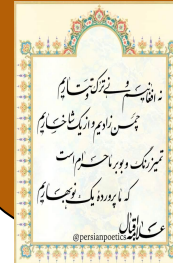 نه افغانیم و نی ترک و تتاریم
چمن زادیم و از یک شاخساریم
تمیز رنگ و بو بر ما حرام است
که ما پروردهٔ یک نوبهاریم
علامه اقبال
@persianpoetics